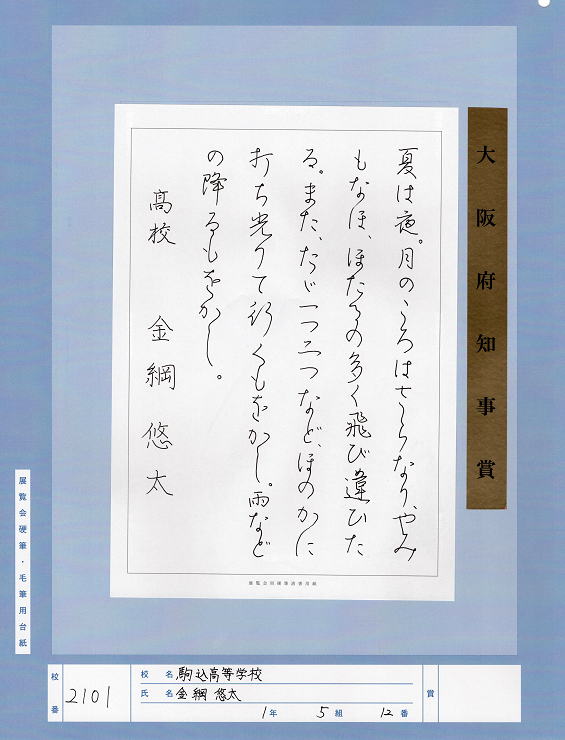 大阪府知事賞
夏は夜。月のころはさらなり、やみ
もなほ、ほたるの多く飛び違ひた
る。また、ただ一つ二つなど、ほのかに
打ち光りて行くもをかし。雨など
の降るもをかし。
高校 金綱悠太
展覧会用硬筆清書用紙
展覧会硬筆・毛筆用台紙
校番 2101
校名 駒込高等学校
氏名 金綱悠太
1年 5組 12番
賞